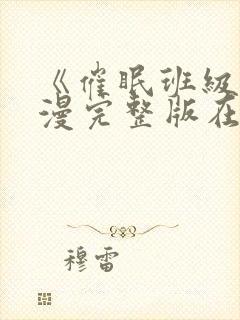 《催眠班級
漫完整版在
穆雷